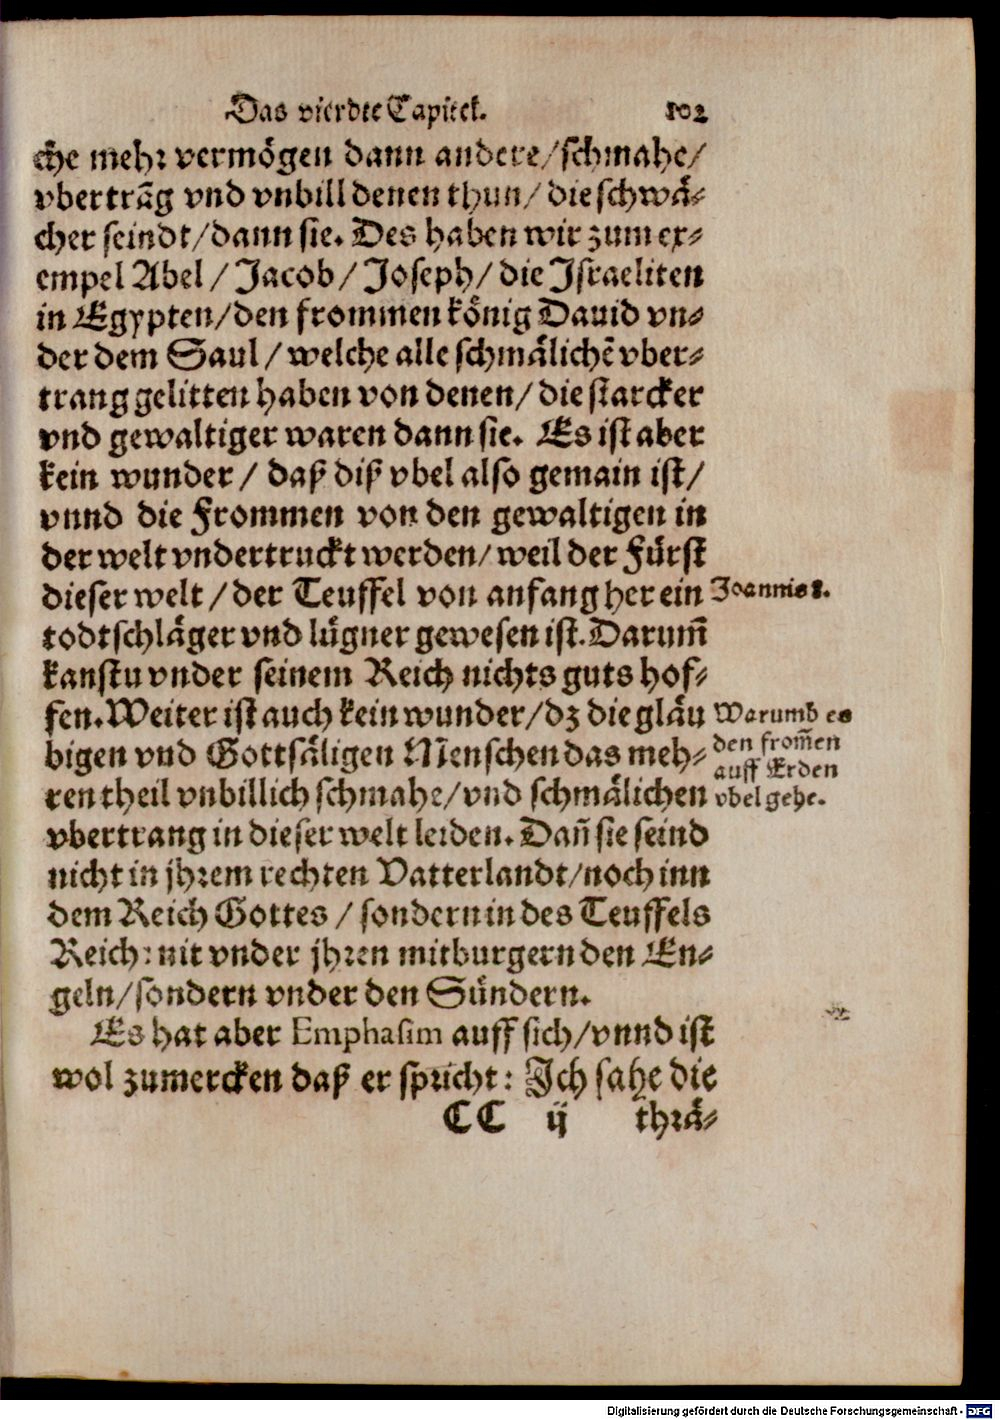 Das vierdte Capitel. 102
che mehr vermögen dann andere/schmahe/
vbertrãg vnd vnbill denen thun/ die schwä-
cher seindt/dann sie. Des haben wir zum ex-
empel Abel / Jacob/ Joseph/ die Israeliten
in Egypten/den frommen könig Dauid vn-
der dem Saul / welche alle schmälichẽ vber-
trang gelitten haben von denen/ die starcker
vnd gewaltiger waren dann sie. Es ist aber
kein wunder / daß diß vbel also gemain ist/
vnnd die Frommen von den gewaltigen in
der welt vndertruckt werden/ weil der Fürst
dieser welt / der Teuffel von anfang her ein
Joannis 8.
todtschläger vnd lügner gewesen ist. Darum̃
kanstu vnder seinem Reich nichts guts hof-
fen. Weiter ist auch kein wunder/dz die gläu
bigen vnd Gottsäligen Menschen das meh-
ren theil vnbillich schmahe/vnd schmälichen
Warumb es
den from̃en
auff Erden
vbel gehe.
vbertrang in dieser welt leiden. Dañ sie seind
nicht in jhrem rechten Vatterlandt/noch inn
dem Reich Gottes / sondern in des Teuffels
Reich: nit vnder jhren mitburgern den En-
geln/sondern vnder den Sündern.
Es hat aber Emphasim auff sich/vnnd ist
wol zumercken daß er spricht: Ich sahe die
CC ij thrä-
Digitalisierung gefördert durch die Deutsche Forschungsgemeinschaft - DFG